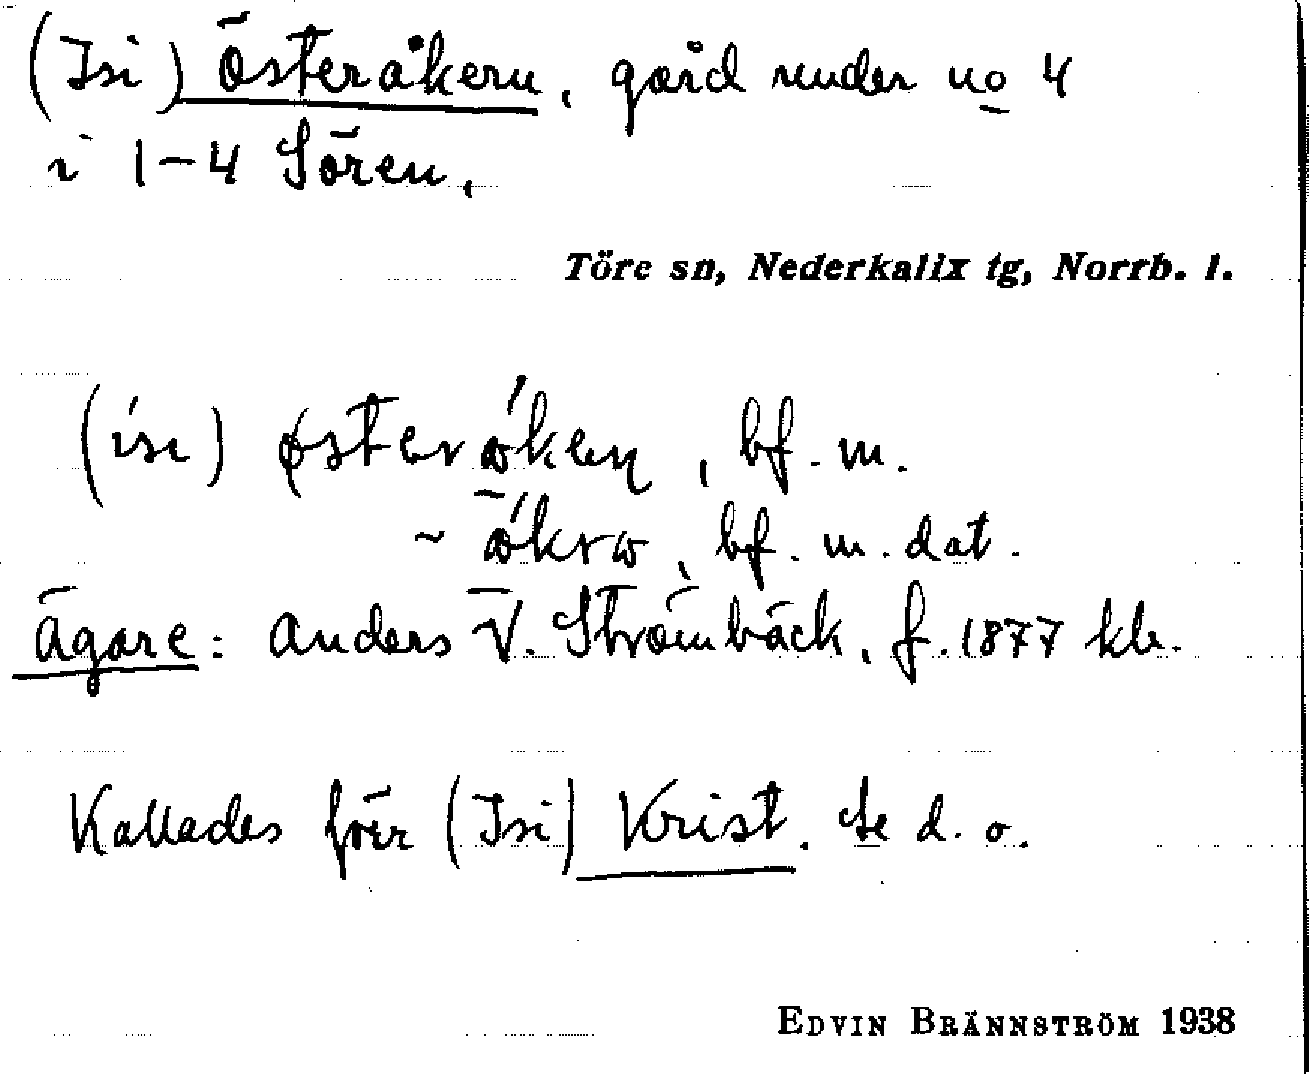 (Isi) Österåkern, gård under no 4
i 1-4 Sören,
Töre sn, Nederkalix tg, Norrb. l.
(ise) østeråken, bf. m.
~ åkrω, bf. m. dat.
Ägare: Anders V. Strömbäck, f. 1877 kb.
Kallades förr (Isi) Krist. Se d. o.
EDVIN BRÄNNSTRÖM 1938